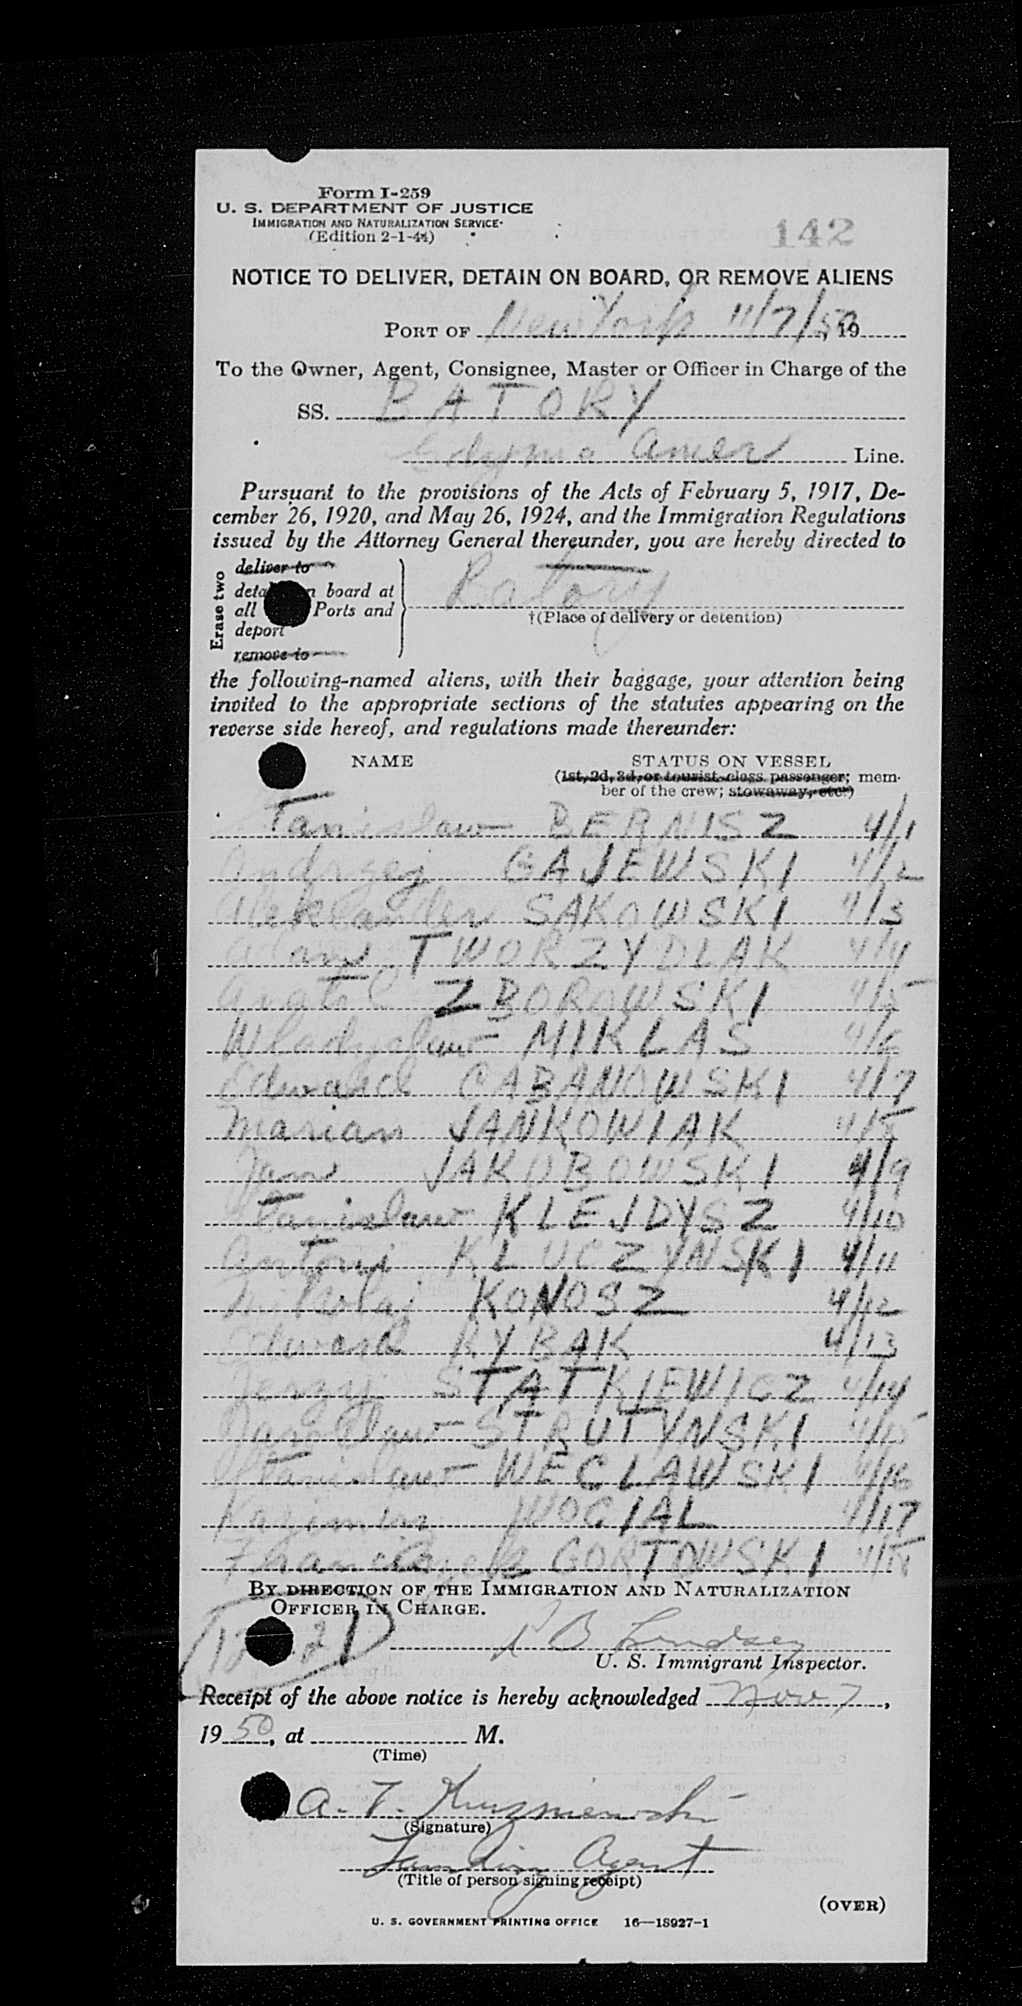 Form I-259
U. S. DEPARTMENT OF JUSTICE
IMMIGRATION AND NATURALIZATION SERVICE
(Edition 2-1-44)
142
NOTICE TO DELIVER, DETAIN ON BOARD, OR REMOVE ALIENS
PORT OF New York 11/7/50, 19
To the Owner, Agent, Consignee, Master or Officer in Charge of the
SS. BATORY
Gdynia Amer Line.
Pursuant to the provisions of the Acts of February 5, 1917, De-
cember 26, 1920, and May 26, 1924, and the Immigration Regulations
issued by the Attorney General thereunder, you are hereby directed to
Erase two
deliver to
detain on board at
all Ports and
deport
remove to
Batory
†(Place of delivery or detention)
the following-named aliens, with their baggage, your attention being
invited to the appropriate sections of the statutes appearing on the
reverse side hereof, and regulations made thereunder:
NAME STATUS ON VESSEL
(1st, 2d, 3d, or tourist-class passenger; mem-
ber of the crew; stowaway, etc.)
Stanislaw BERNISZ 4/1
Andrzej GAJEWSKI 4/2
Aleksander SAKOWSKI 4/3
Adam TWORZYDLAK 4/4
Anatol ZBOROWSKI 4/5
Wladyslaw MIKLAS 4/6
Edward CABANOWSKI 4/7
Marian JANKOWIAK 4/8
Jan JAKOBOWSKI 4/9
Stanislaw KLEJDYSZ 4/10
Antoni KLUCZYNSKI 4/11
Mikolaj KONOSZ 4/12
Edward RYBAK 4/13
Jerzy STATKIEWICZ 4/14
Jaroslaw STRUTYNSKI 4/15
Stanislaw WECLAWSKI 4/16
Kazimierz WOCIAL 4/17
Franciszek GORTOWSKI 4/18
BY DIRECTION OF THE IMMIGRATION AND NATURALIZATION
OFFICER IN CHARGE.
B Lindsey
U. S. Immigrant Inspector.
Receipt of the above notice is hereby acknowledged Nov 7,
19 50, at M.
(Time)
A. T. Kuzniewski
(Signature)
Landing Agent
(Title of person signing receipt)
(OVER)
U. S. GOVERNMENT PRINTING OFFICE 16—18927-1